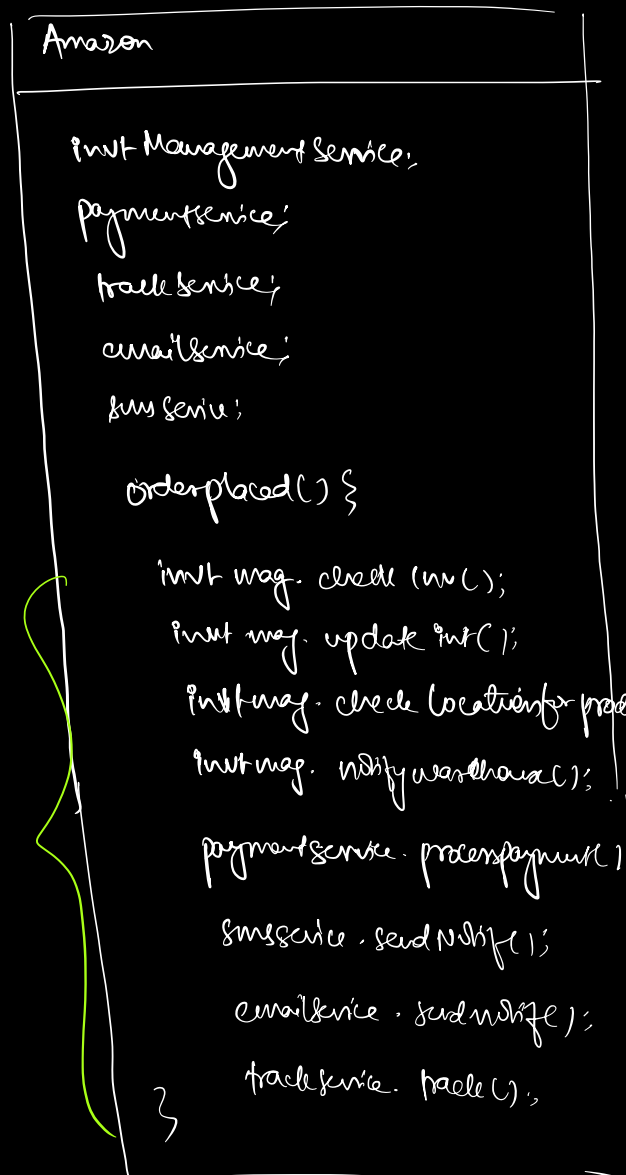 Amazon
invt Management Service;
paymentservice;
track service;
emailservice;
sms service;
orderplaced() {
invt mag. check inv();
invt mag. update invt();
invt mag. check locationfor prod
invt mag. notifywarehouse();
paymentservice. processpayment()
smsservice. send Notify();
emailservice. sendnotify();
trackservice. track();
}